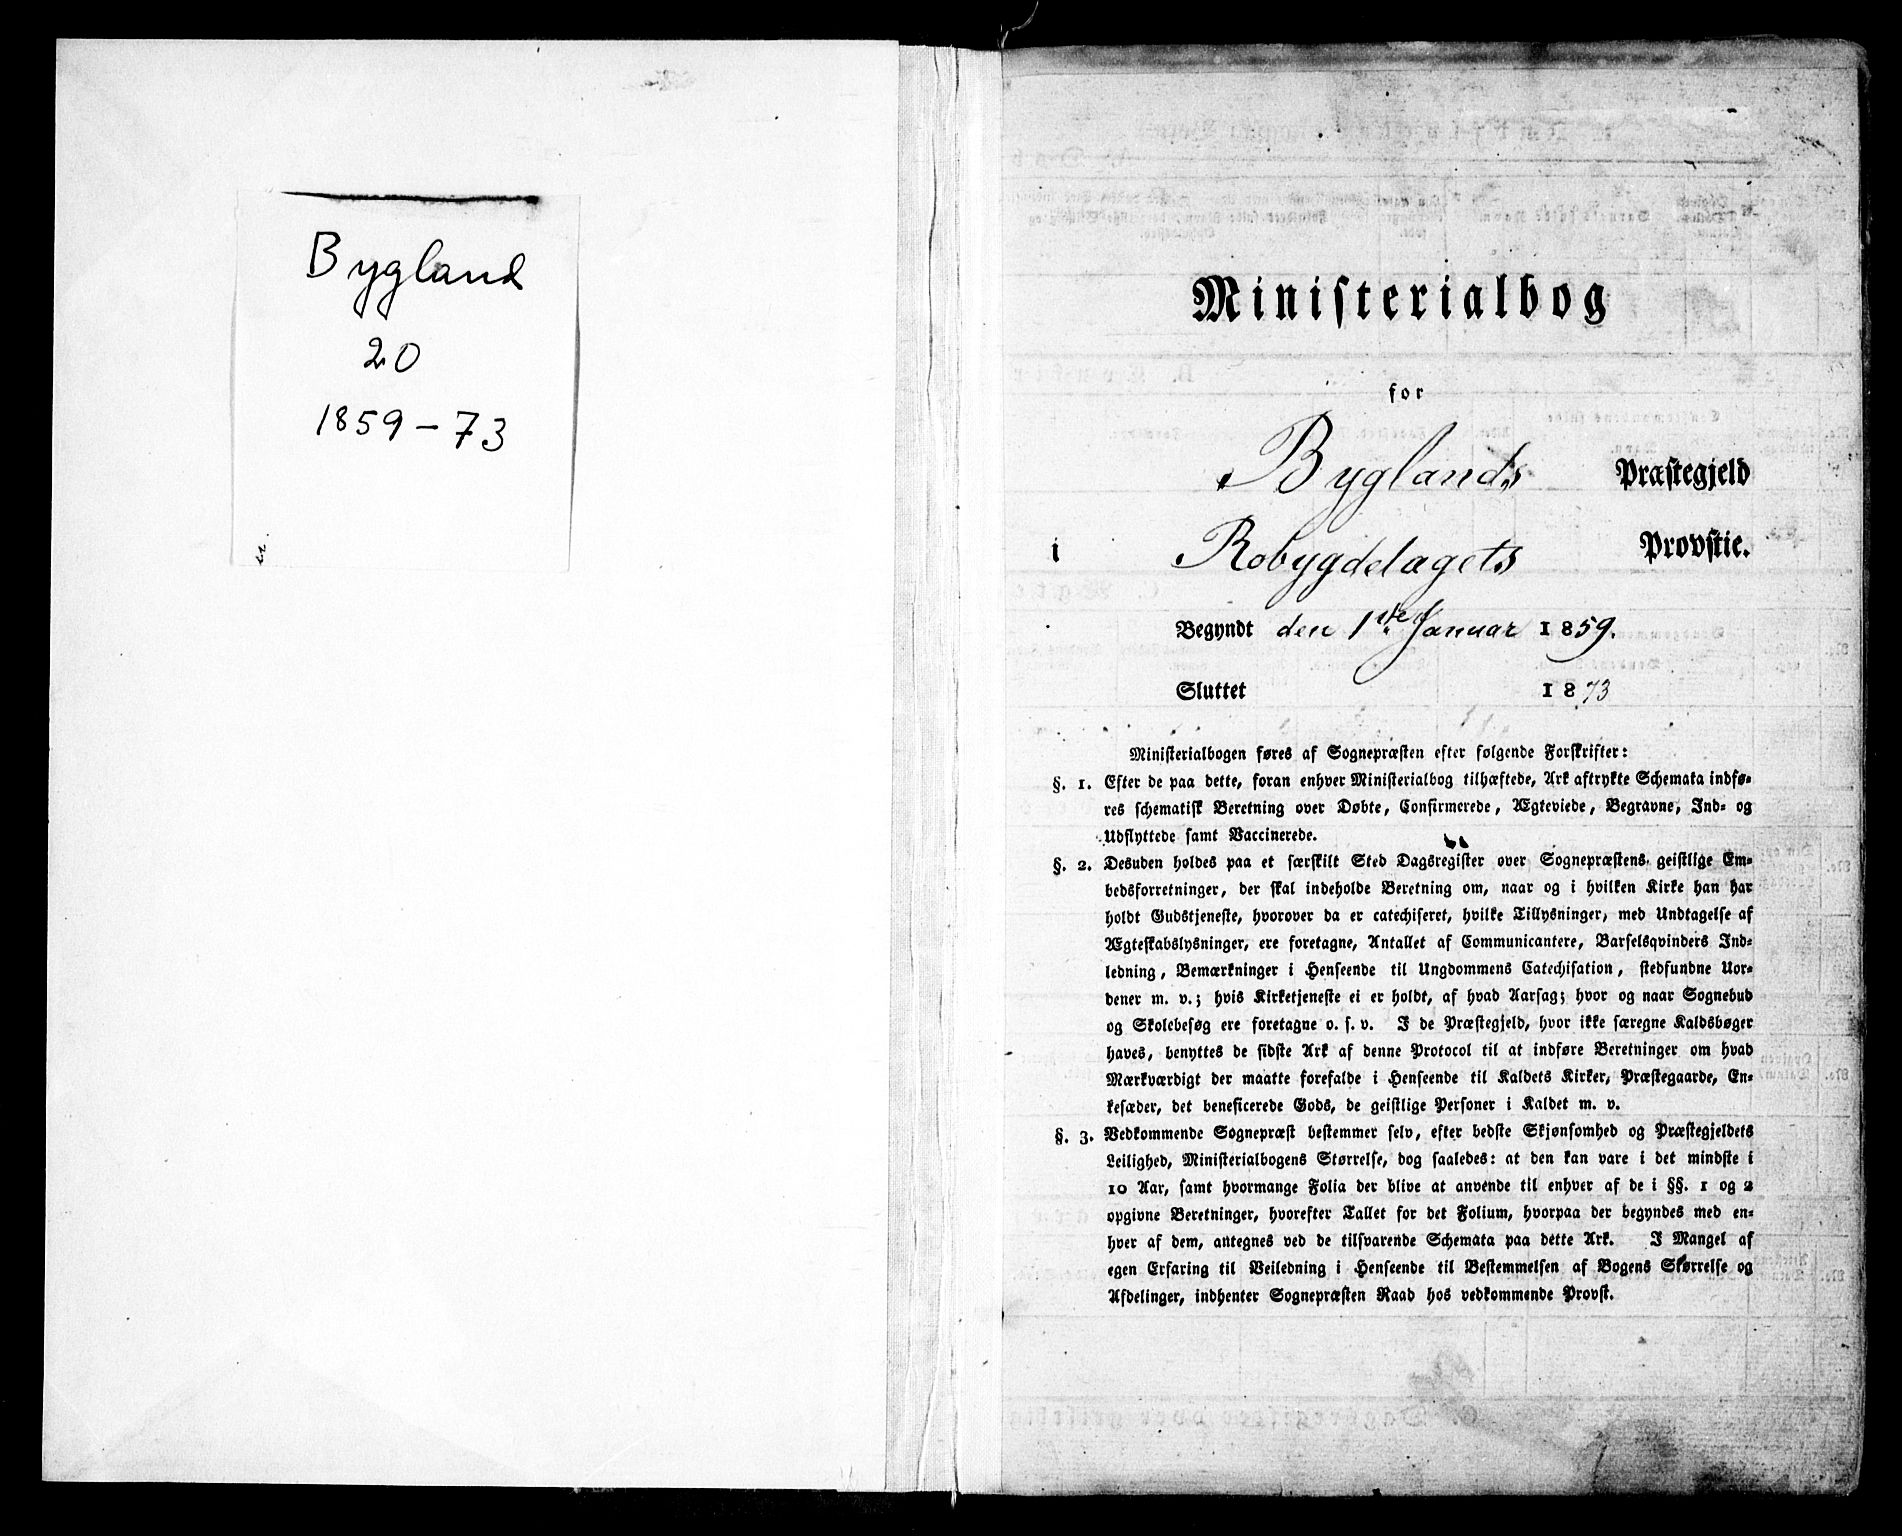 Bygland
20
1859-73
Ministerialbog
for
Byglands Præstegjeld
i Robygdelagets Provstie.
Begyndt den 1ste Januar 1859.
Sluttet 1873
Ministerialbogen føres af Sognepræsten efter følgende Forskrifter:
§. 1. Efter de paa dette, foran enhver Ministerialbog tilhæftede, Ark aftrykte Schemata indfø-
res schematisk Beretning over Døbte, Confirmerede, Ægteviede, Begravne, Ind- og
Udflyttede samt Vaccinerede.
§. 2. Desuden holdes paa et særskilt Sted Dagsregister over Sognepræstens geistlige Em-
bedsforretninger, der skal indeholde Beretning om, naar og i hvilken Kirke han har
holdt Gudstjeneste, hvorover da er catechiseret, hvilke Tillysninger, med Undtagelse af
Ægteskabslysninger, ere foretagne, Antallet af Communicantere, Barselsqvinders Ind-
ledning, Bemærkninger i Henseende til Ungdommens Catechisation, stedfundne Uor-
dener m. v.; hvis Kirketjeneste ei er holdt, af hvad Aarsag; hvor og naar Sognebud
og Skolebesøg ere foretagne o. s. v. I de Præstegjeld, hvor ikke særegne Kaldsbøger
haves, benyttes de sidste Ark af denne Protocol til at indføre Beretninger om hvad
Mærkværdigt der maatte forefalde i Henseende til Kaldets Kirker, Præstegaarde, En-
kesæder, det beneficerede Gods, de geistlige Personer i Kaldet m. v.
§. 3. Vedkommende Sognepræst bestemmer selv, efter bedste Skjønsomhed og Præstegjeldets
Leilighed, Ministerialbogens Størrelse, dog saaledes: at den kan vare i det mindste i
10 Aar, samt hvormange Folia der blive at anvende til enhver af de i §§. 1 og 2
opgivne Beretninger, hvorefter Tallet for det Folium, hvorpaa der begyndes med en-
hver af dem, antegnes ved de tilsvarende Schemata paa dette Ark. I Mangel af
egen Erfaring til Veiledning i Henseende til Bestemmelsen af Bogens Størrelse og
Afdelinger, indhenter Sognepræsten Raad hos vedkommende Provst.